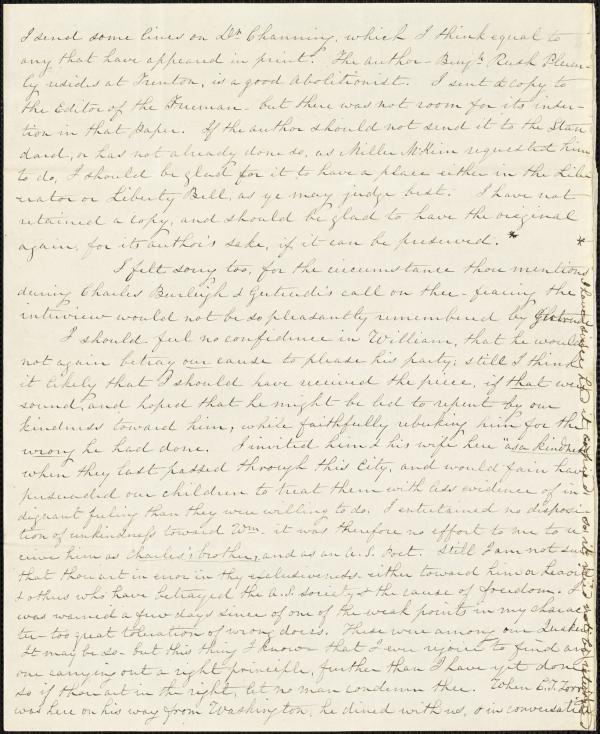 I send some lines on Dr. Channing, which I think equal to
any that have appeared in print. The author - Benjn. Rush Plum-
ly resides at Trenton, is a good Abolitionist. I sent a copy to
the Editor of the Freeman - but there was not room for its inser-
tion in that Paper. If the author should not send it to the Stan
dard, or has not already done so, as Miller McKim requested him
to do, I should be glad for it to have a place either in the Libe
rator or Liberty Bell, as ye may judge best. I have not
retained a copy, and should be glad to have the original
again, for its author's sake, if it can be preserved. *
I felt sorry too, for the circumstance thou mentions
during Charles Burleigh & Gertrude's call on thee - fearing the
interview would not be so pleasantly remembered by Gertrude
I should feel no confidence in William, that he would
not again betray our cause to please his party; still I think
it likely that I should have received the piece, if that were
sound, and hoped that he might be led to repent by our
kindness toward him, while faithfully rebuking him for the
wrong he had done. I invited him & his wife here "as a kindness"
when they last passed through this City, and would fain have
persuaded our children to treat them with less evidence of in
dignant feeling than they were willing to do. I entertained no disposi
tion of unkindness toward Wm. it was therefore no effort to me to re
ceive him as Charles's brother, and as an A.S. Poet. Still I am not sure
that thou art in error in thy exclusiveness either toward him or Leavitt
& others who have betrayed the A.S. society & the cause of freedom. I
was warned a few days since of one of the weak points in my charac
ter - too great toleration of wrong doers. These were among our Quakers
It may be so - but this thing I know - that I ever rejoice to find any
one carrying out a right principle, further than I have yet done
so if thou art in the right, let no man condemn thee. When C.T. Torrey
was here on his way from Washington, he dined with us, & in conversation